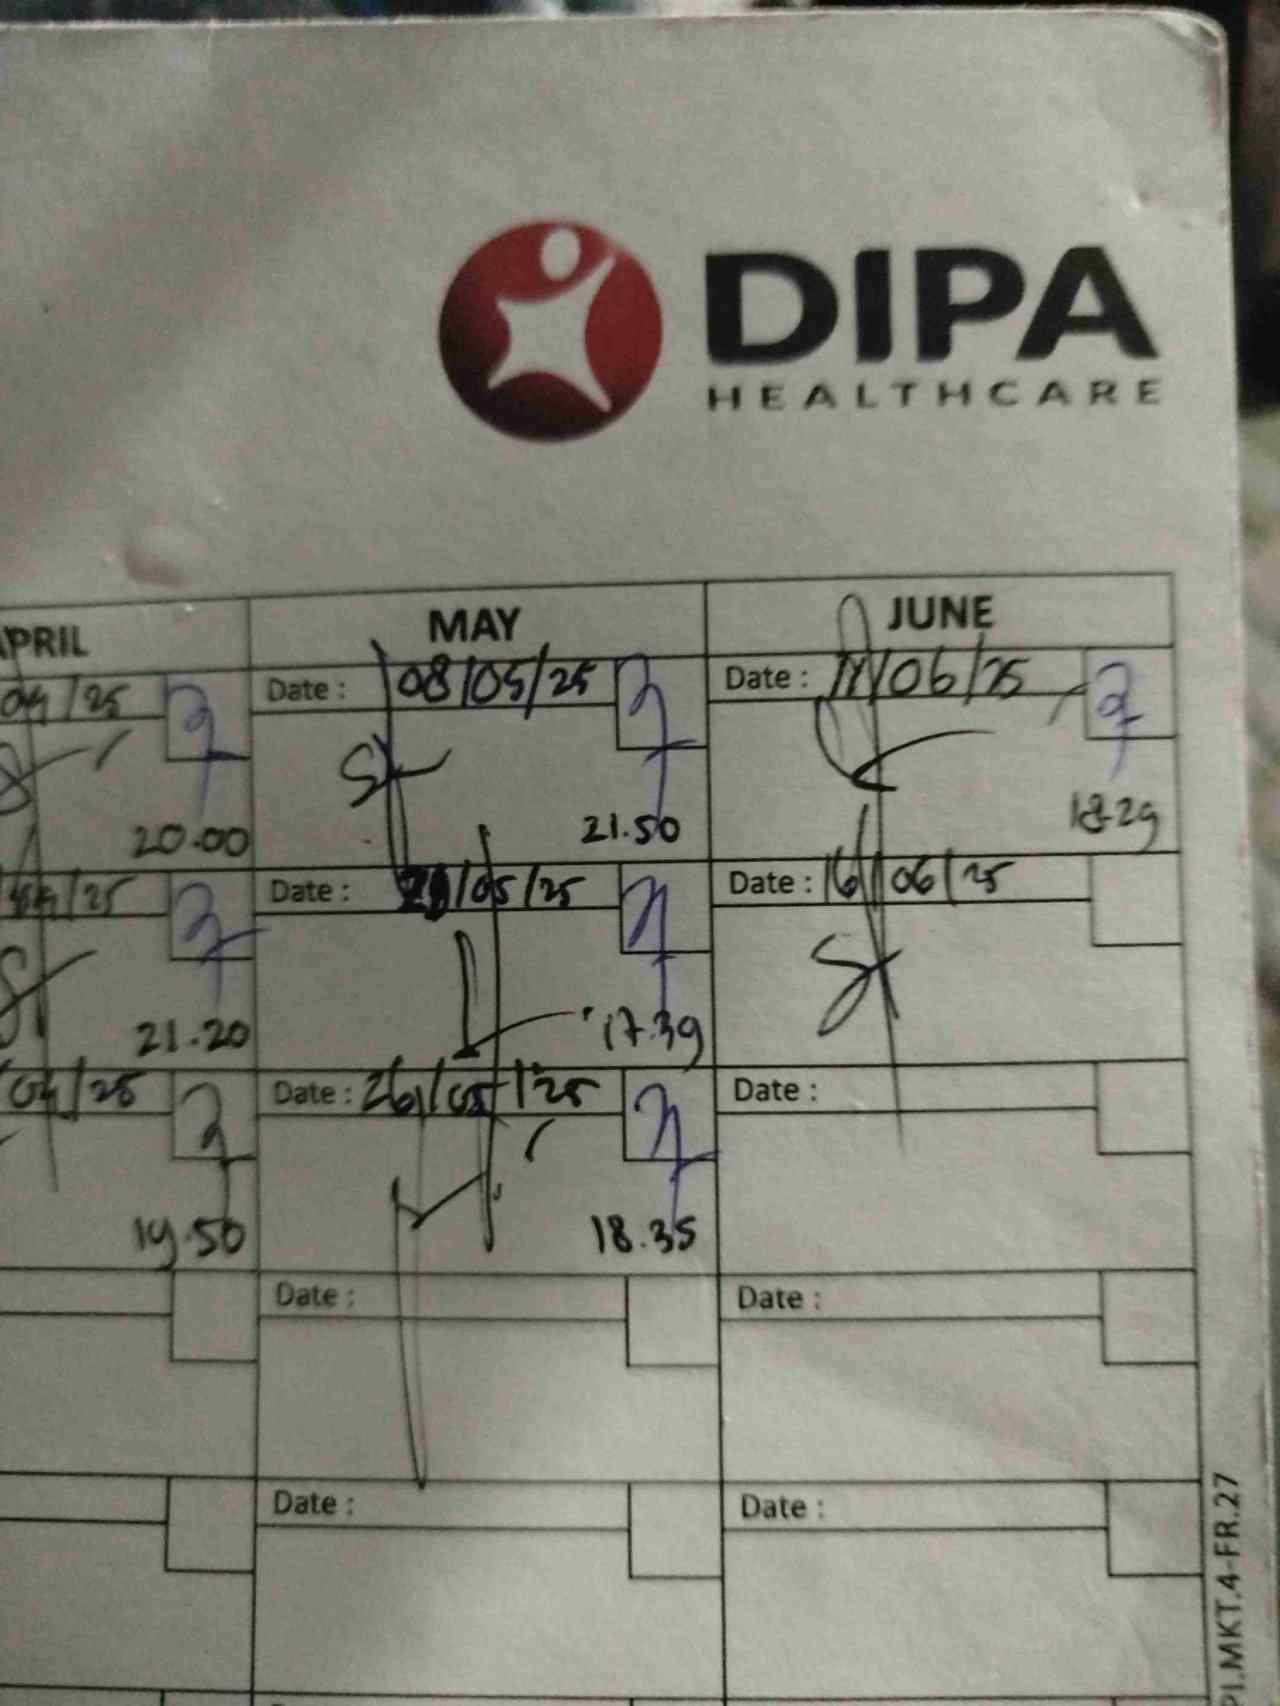 DIPA
HEALTHCARE
APRIL MAY JUNE
04/25 Date : 08/05/25 Date : 11/06/25
20.00 21.50 18.29
04/25 Date : 21/05/25 Date : 16/06/25
21.20 17.39
04/25 Date : 26/05/25 Date :
19.50 18.35
Date : Date :
Date : Date :
PI.MKT.4-FR.27